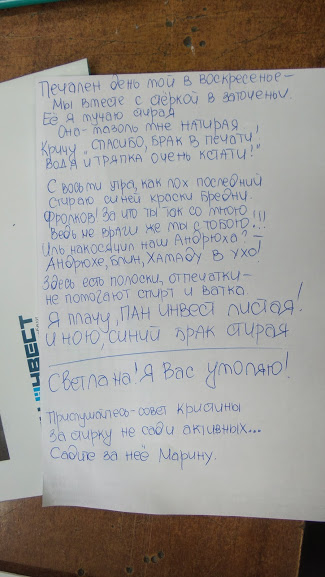 Печален день мой в воскресенье –
Мы вместе с стеркой в заточеньи.
Её я мучаю стирая
Она – мозоль мне натирая.
Кричу „СПАСИБО, БРАК В ПЕЧАТИ!
ВОДА И ТРЯПКА ОЧЕНЬ КСТАТИ!"
С восьми утра, как лох последний
Стираю синей краски бредни.
Фролков! За что ты так со мною
Ведь не враги же мы с тобою!!!
Иль накосячил наш Андрюха? –
АНДРЮХЕ, БЛИН, ХАЛАДУ В УХО!
Здесь есть полоски, отпечатки –
не помогают спирт и ватка.
Я плачу, ПАН ИНВЕСТ листая!
И ною, синий брак стирая
Светлана! Я Вас умоляю!
Прислушайтесь – совет Кристины
За стирку не сади активных...
Садите за неё Марину.
ИНВЕСТ